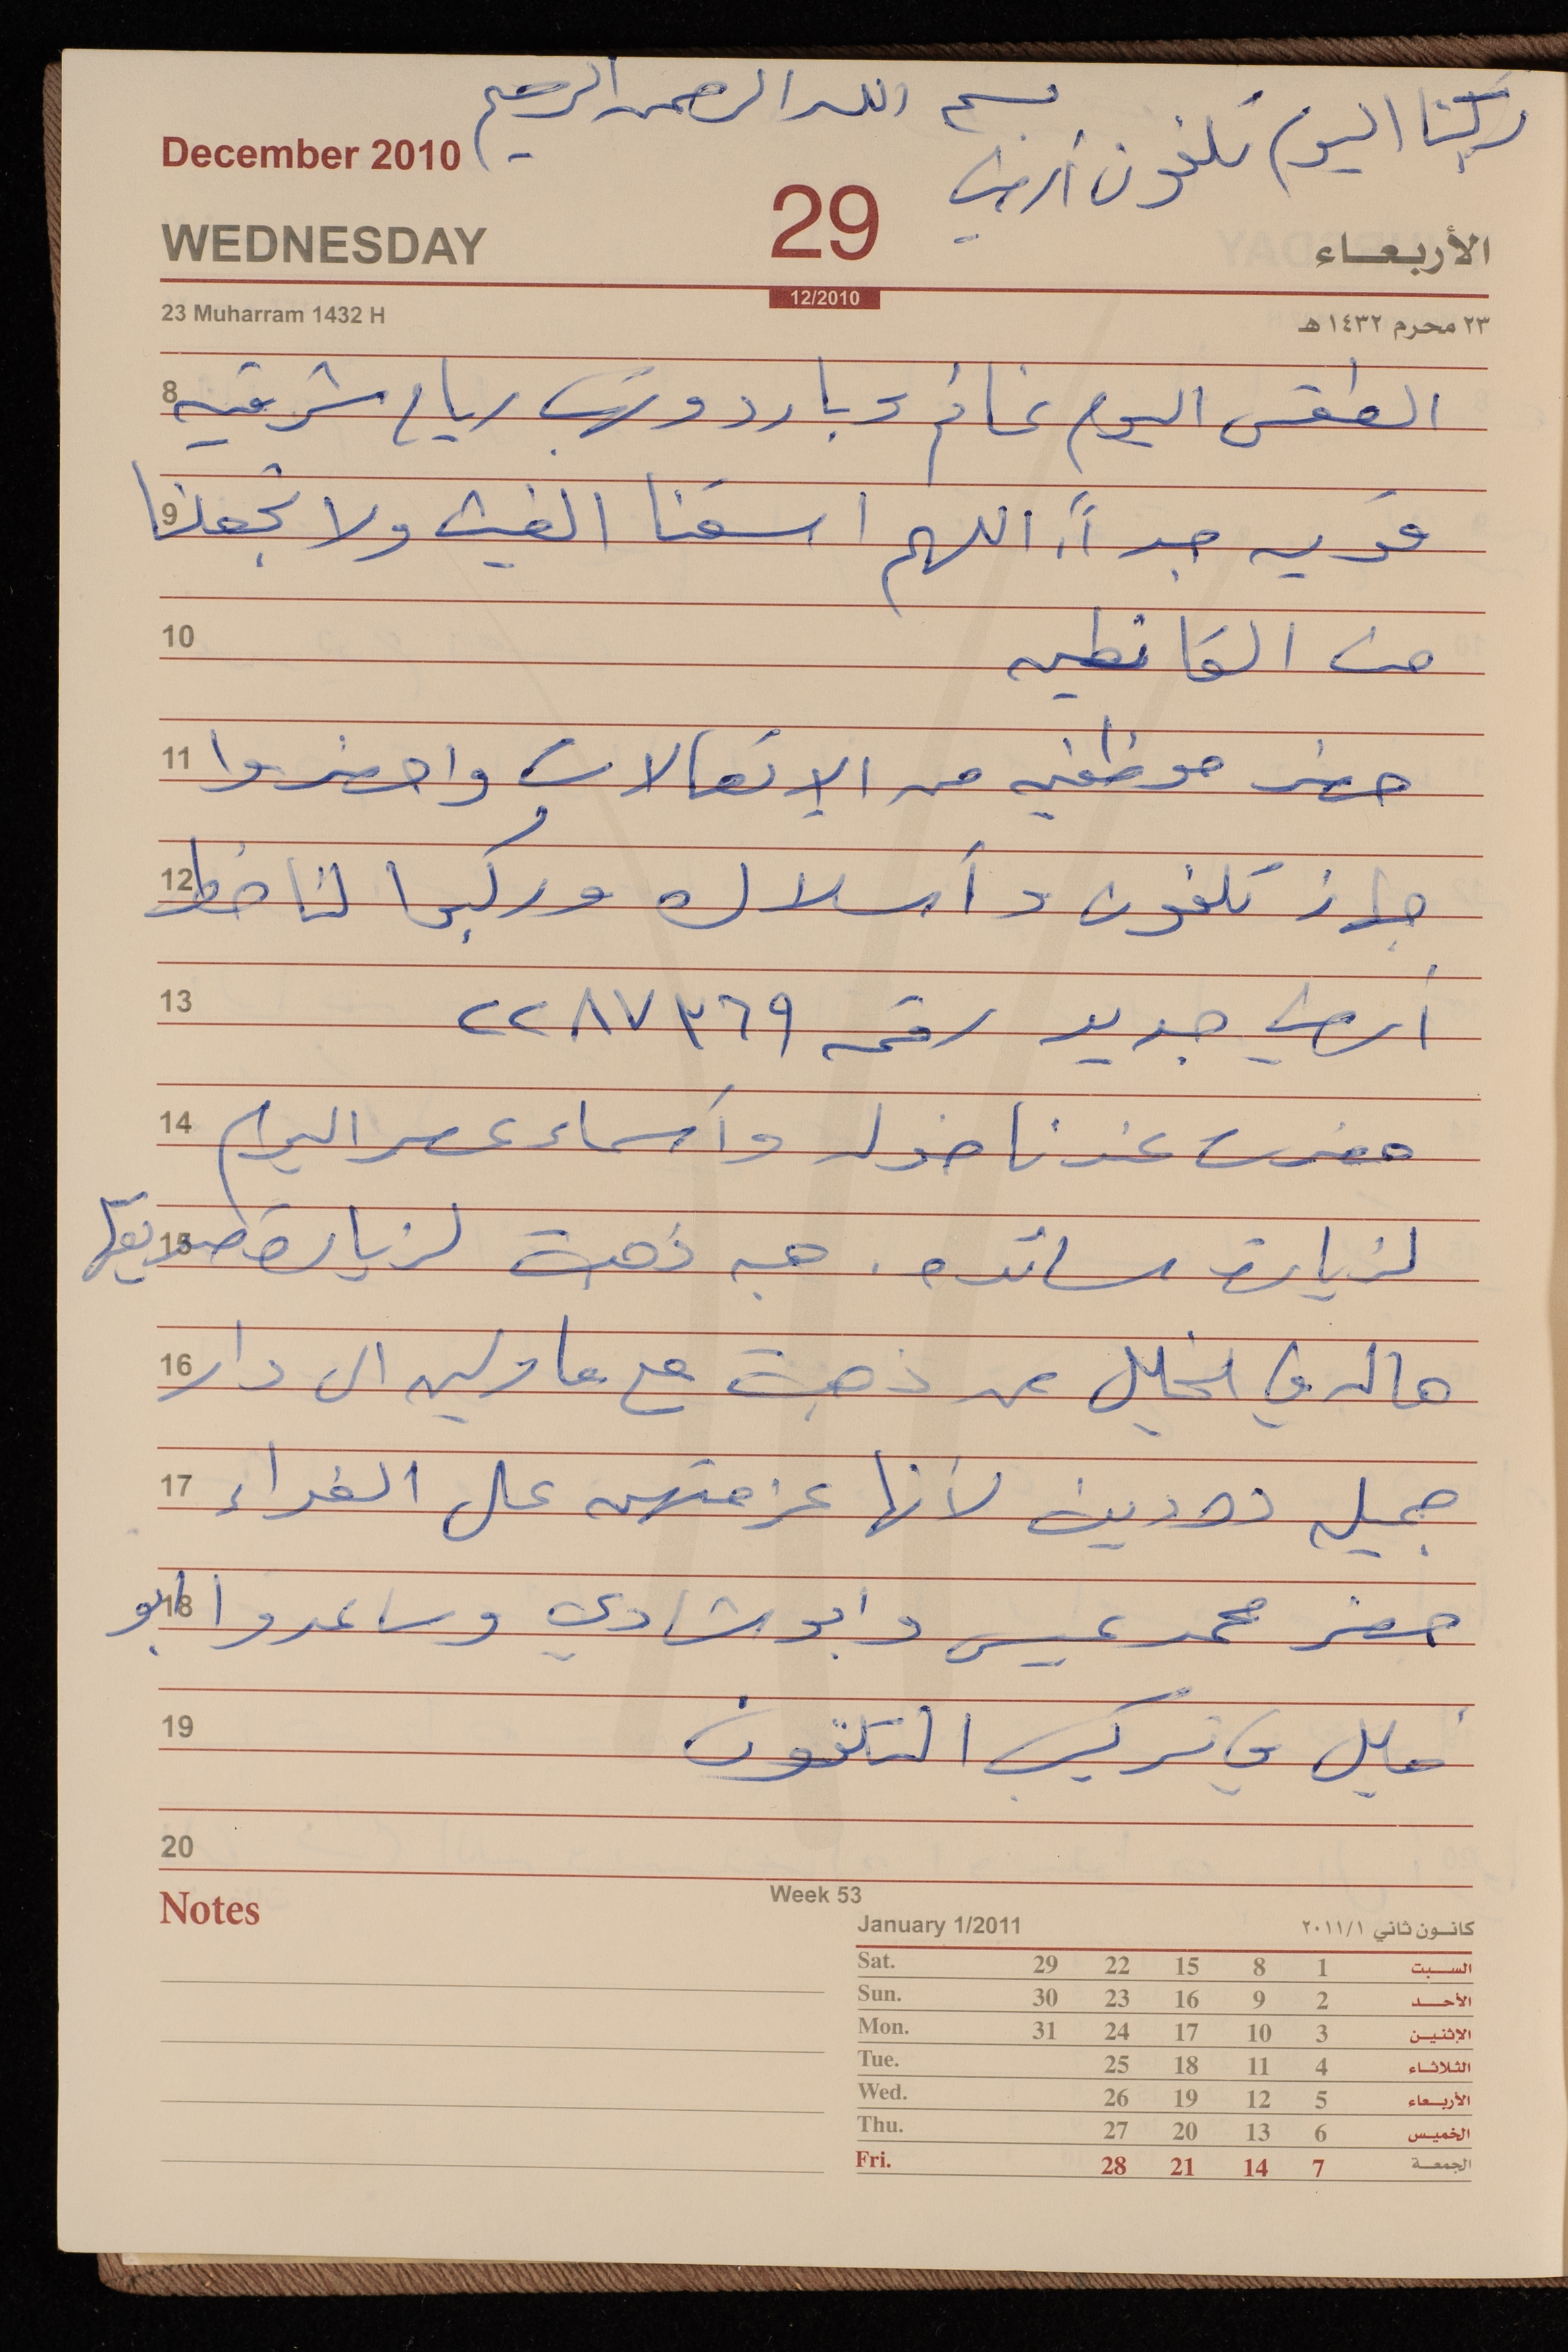 بسم الله الرحمن الرحيم
ركبنا اليوم تلفون أرضي
December 2010
WEDNESDAY
29
الأربعاء
12/2010
23 Muharram 1432 H
٢٣ محرم ١٤٣٢ هـ
8 الطقس اليوم غائم وبارد وتهب رياح شرقيه
9 قويه جداً، اللهم اسقنا الغيث ولا تجعلنا
10 من القانطين
11 حضر موظفين من الاتصالات واحضروا
12 جهاز تلفون وأسلاك وركبوا لنا خط
13 أرضي جديد رقمه ٢٢٨٧٣٦٩
14 حضرت عندنا خوله وأسماء عصر اليوم
15 لزيارة سائده. هبه ذهبت لزيارة صديقتها
16 هاله في الخليل ذهبت مع الى دار
17 جميله لأنها عزمتهن على الغداء
18 حضر محمد عيسى وابو شادي وساعدوا ابو
19 في تركيب التلفون
20
Notes
Week 53
January 1/2011
كانون ثاني ٢٠١١/١
Sat. 29 22 15 8 1 السبت
Sun. 30 23 16 9 2 الأحد
Mon. 31 24 17 10 3 الإثنين
Tue. 25 18 11 4 الثلاثاء
Wed. 26 19 12 5 الأربعاء
Thu. 27 20 13 6 الخميس
Fri. 28 21 14 7 الجمعة